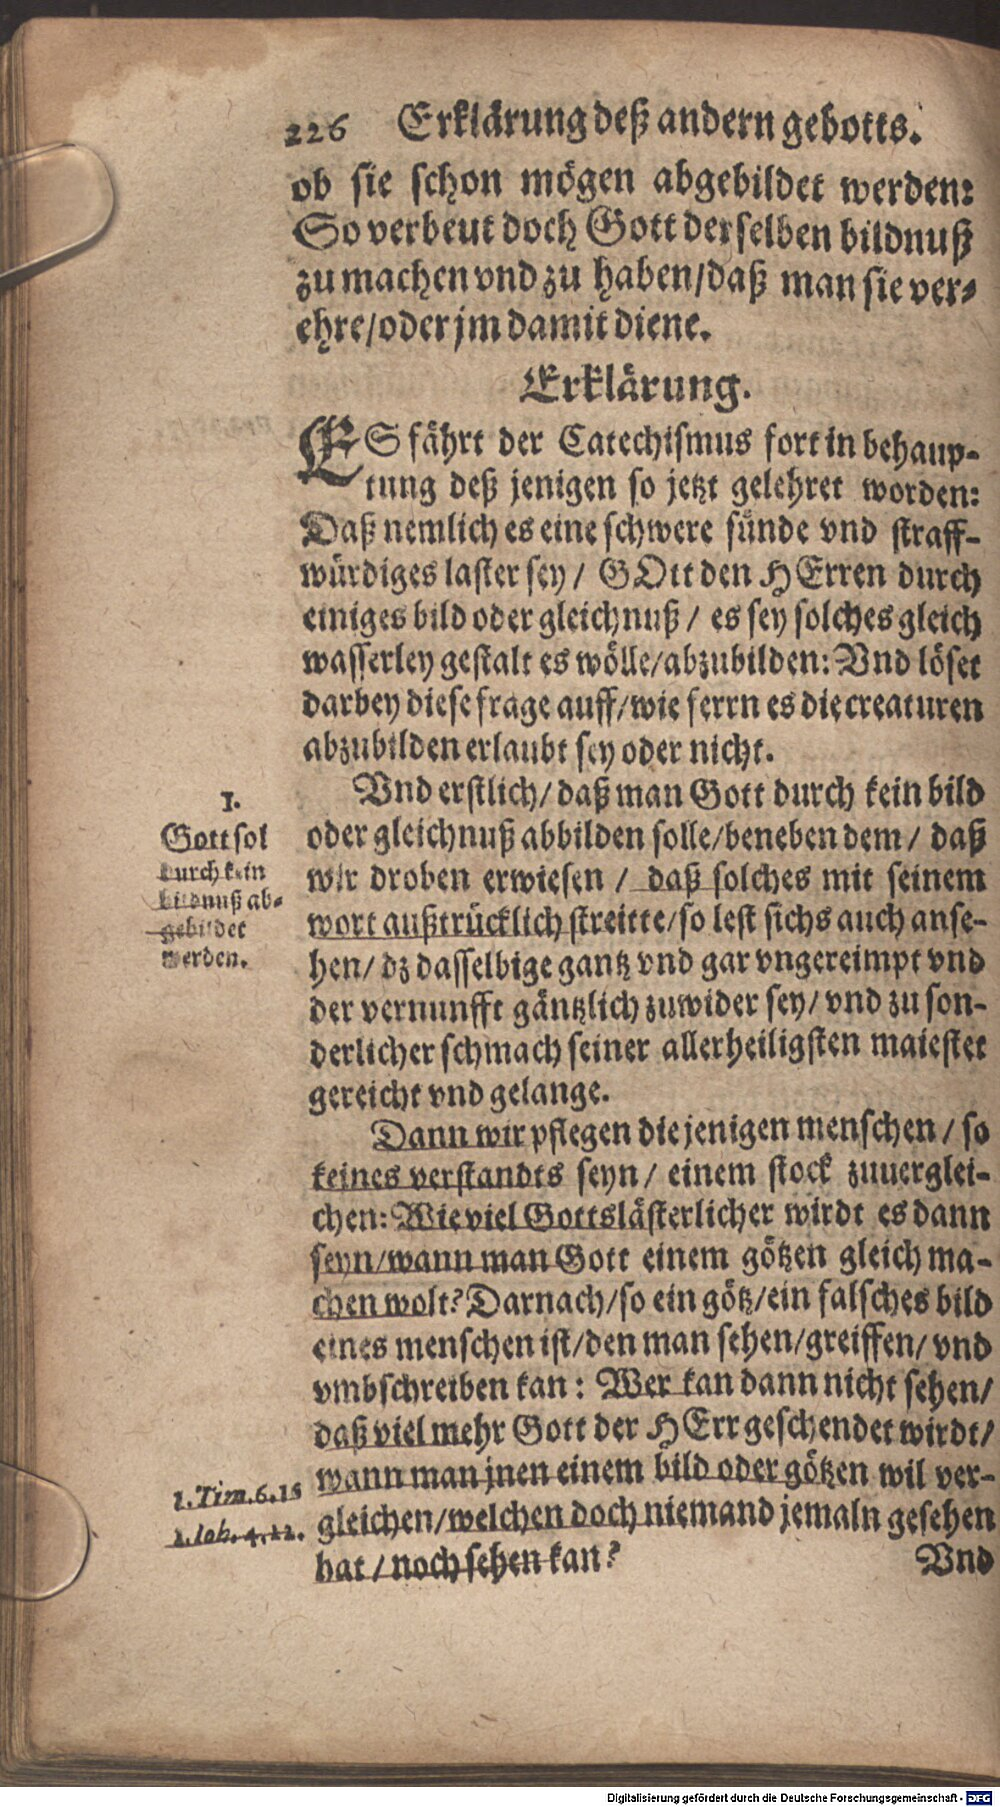 226 Erklärung deß andern gebotts.
ob sie schon mögen abgebildet werden:
So verbeut doch Gott derselben bildnuß
zu machen vnd zu haben/daß man sie ver-
ehre/oder jm damit diene.
Erklärung.
ES fährt der Catechismus fort in behaup-
tung deß jenigen so jetzt gelehret worden:
Daß nemlich es eine schwere sünde vnd straff-
würdiges laster sey/ GOtt den HErren durch
einiges bild oder gleichnuß/ es sey solches gleich
wasserley gestalt es wölle/abzubilden: Vnd löset
darbey diese frage auff/wie ferrn es die creaturen
abzubilden erlaubt sey oder nicht.
Vnd erstlich/daß man Gott durch kein bild
oder gleichnuß abbilden solle/beneben dem/ daß
wir droben erwiesen/ daß solches mit seinem
wort außtrücklich streitte/so lest sichs auch anse-
hen/ dz dasselbige gantz vnd gar vngereimpt vnd
der vernunfft gäntzlich zuwider sey/ vnd zu son-
derlicher schmach seiner allerheiligsten maiestet
gereicht vnd gelange.
1.
Gott sol
durch kein
bildnuß ab-
gebildet
werden.
Dann wir pflegen die jenigen menschen/ so
keines verstandts seyn/ einem stock zuuerglei-
chen: Wie viel Gottslästerlicher wirdt es dann
seyn/wann man Gott einem götzen gleich ma-
chen wolt? Darnach/so ein götz/ein falsches bild
eines menschen ist/den man sehen/greiffen/ vnd
vmbschreiben kan: Wer kan dann nicht sehen/
daß viel mehr Gott der HErr geschendet wirdt/
wann man jnen einem bild oder götzen wil ver-
gleichen/welchen doch niemand jemaln gesehen
hat/ noch sehen kan?
1. Tim. 6. 15
1. Ioh. 4. 12.
Vnd
Digitalisierung gefördert durch die Deutsche Forschungsgemeinschaft - DFG